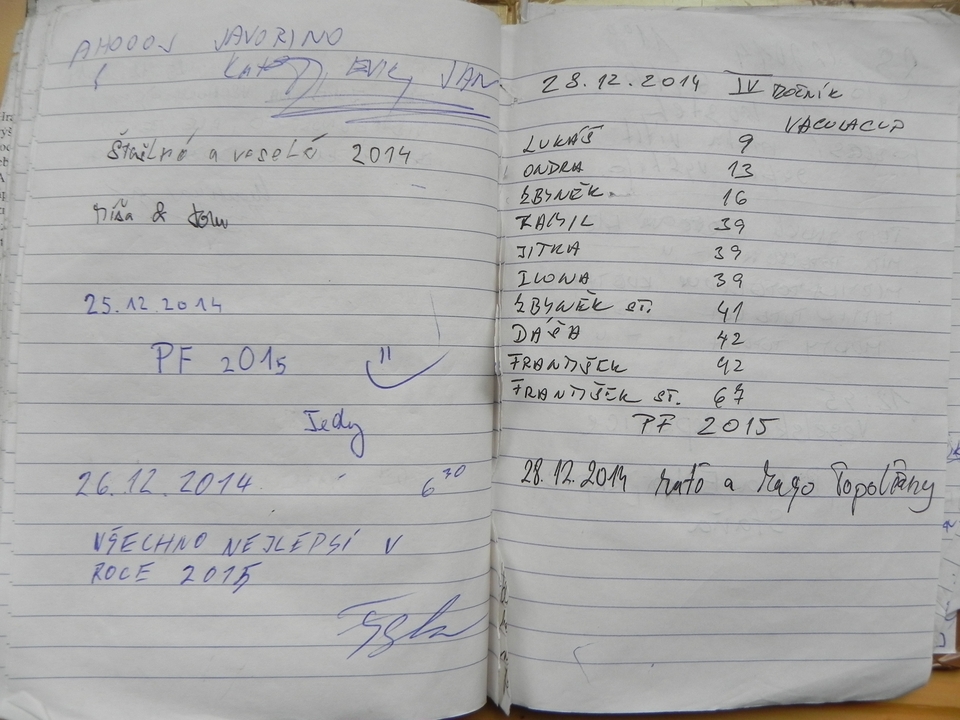 AHOOOJ JAVORINO
JAN
a veselé 2014
Míša &
25.12.2014
PF 2015
Jedy
26.12.2014 6³⁰
VŠECHNO NEJLEPSÍ V
ROCE 2015
28.12.2014 IV ROČNÍK
VACULACUP
LUKÁŠ 9
ONDRA 13
ZBYNĚK 16
KAMIL 39
JITKA 39
ILONA 39
ZBYNĚK ST. 41
DÁŠA 42
FRANTIŠEK 42
FRANTIŠEK ST. 67
PF 2015
28.12.2014 Maťo a Topolčany